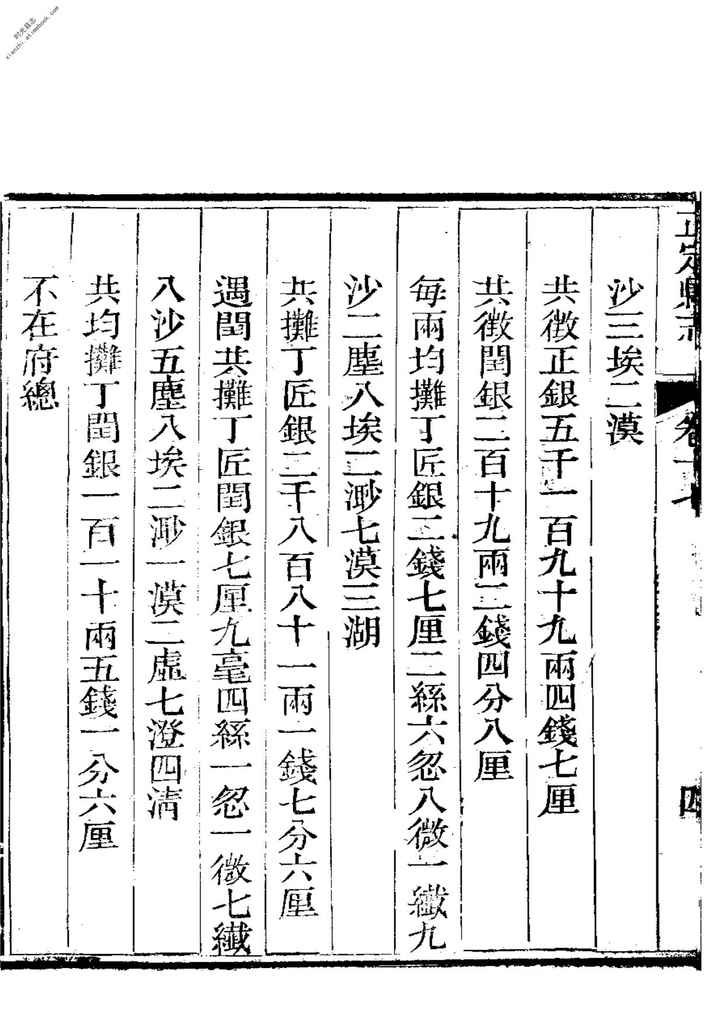 时光县志
xianzhi.atimebook.com
正定縣志
卷十七
四
沙三埃二漠
共徵正銀五千一百九十九兩四錢七厘
共徵閏銀二百十九兩二錢四分八厘
每兩均攤丁匠銀二錢七厘二絲六忽八微一纖九
沙二塵八埃二渺七漠三湖
共攤丁匠銀二千八百八十一兩一錢七分六厘
遇閏共攤丁匠閏銀七厘九毫四絲一忽一微七纖
八沙五塵八埃二渺一漠二虛七澄四清
共均攤丁閏銀一百一十兩五錢一分六厘
不在府總